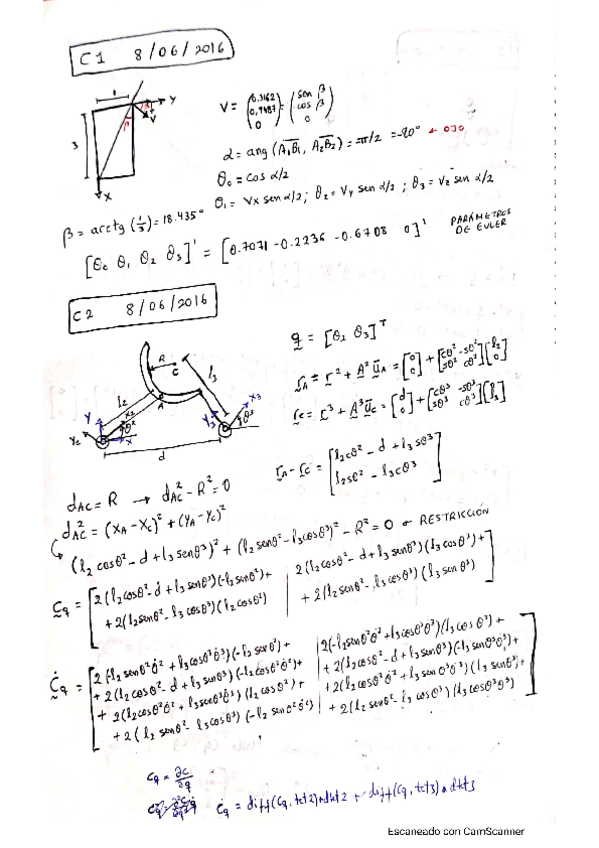 C1 8/06/2016
1
Y
3
β
V
X
V = (0,3162 0,9487 0) = (sen β cos β 0)
α = ang (A₁B₁, A₂B₂) = -π/2 = -90°
θ₀ = cos α/2
θ₁ = Vx sen α/2 ; θ₂ = Vy sen α/2 ; θ₃ = Vz sen α/2
β = arctg (1/3) = 18.435°
[θ₀ θ₁ θ₂ θ₃]' = [0.7071 -0.2236 -0.6708 0]' PARÁMETROS DE EULER
C2 8/06/2016
R
C
l₃
l₂
A
Y
X₂
X₃
Y₂
θ²
X
Y₃
θ³
d
q = [θ₂ θ₃]ᵀ
r_A = r² + A² u_A = [0 0] + [cθ² -sθ² sθ² cθ²][l₂ 0]
r_C = r³ + A³ u_C = [d 0] + [cθ³ -sθ³ sθ³ cθ³][0 l₃]
r_A - r_C = [l₂cθ² - d + l₃sθ³
l₂sθ² - l₃cθ³]
d_AC = R → d_AC² - R² = 0
d_AC² = (X_A - X_C)² + (Y_A - Y_C)²
(l₂ cosθ² - d + l₃senθ³)² + (l₂senθ² - l₃cosθ³)² - R² = 0 ← RESTRICCIÓN
C_q = [2(l₂cosθ² - d + l₃senθ³)(-l₂senθ²) + | 2(l₂cosθ² - d + l₃senθ³)(l₃cosθ³) +
+ 2(l₂senθ² - l₃cosθ³)(l₂cosθ²) | + 2(l₂senθ² - l₃cosθ³)(l₃senθ³)]
Ċ_q = [2(-l₂senθ²θ̇² + l₃cosθ³θ̇³)(-l₂senθ²) + | 2(-l₂senθ²θ̇² + l₃cosθ³θ̇³)(l₃cosθ³) +
+ 2(l₂cosθ² - d + l₃senθ³)(-l₂cosθ²θ̇²) + | + 2(l₂cosθ² - d + l₃senθ³)(-l₃senθ³θ̇³) +
+ 2(l₂cosθ²θ̇² + l₃senθ³θ̇³)(l₂cosθ²) + | + 2(l₂cosθ²θ̇² + l₃senθ³θ̇³)(l₃senθ³) +
+ 2(l₂senθ² - l₃cosθ³)(-l₂senθ²θ̇²) | + 2(l₂senθ² - l₃cosθ³)(l₃cosθ³θ̇³)]
C_q = ∂C/∂q
Ċ_q = diff(Cq, tet2)*dtet2 + diff(Cq, tet3)*dtet3
Escaneado con CamScanner